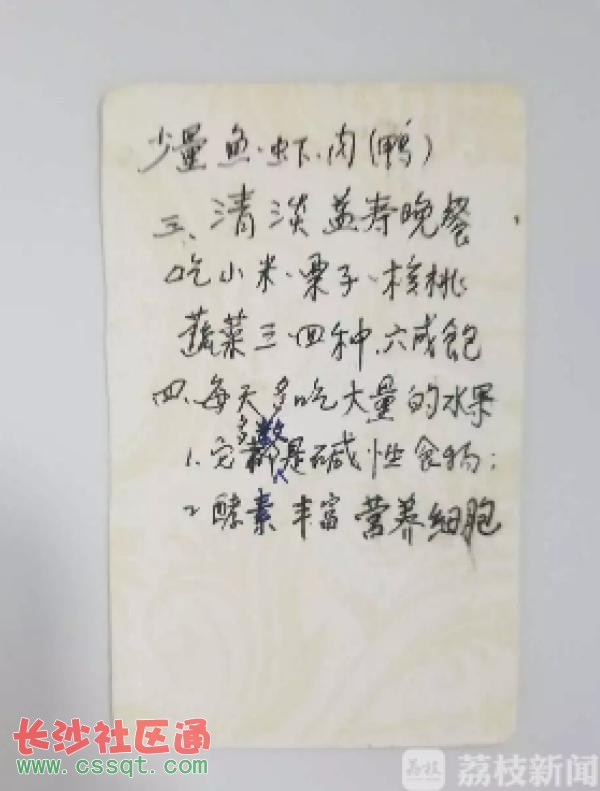 少量鱼、虾、肉(鸭)
三、清淡益寿晚餐
吃小米、栗子、核桃
蔬菜三四种、六成饱
四、每天多吃大量的水果
多数
1. 它都是碱性食物;
2 酵素丰富营养细胞
长沙社区通
www.cssqt.com
荔枝 荔枝新闻